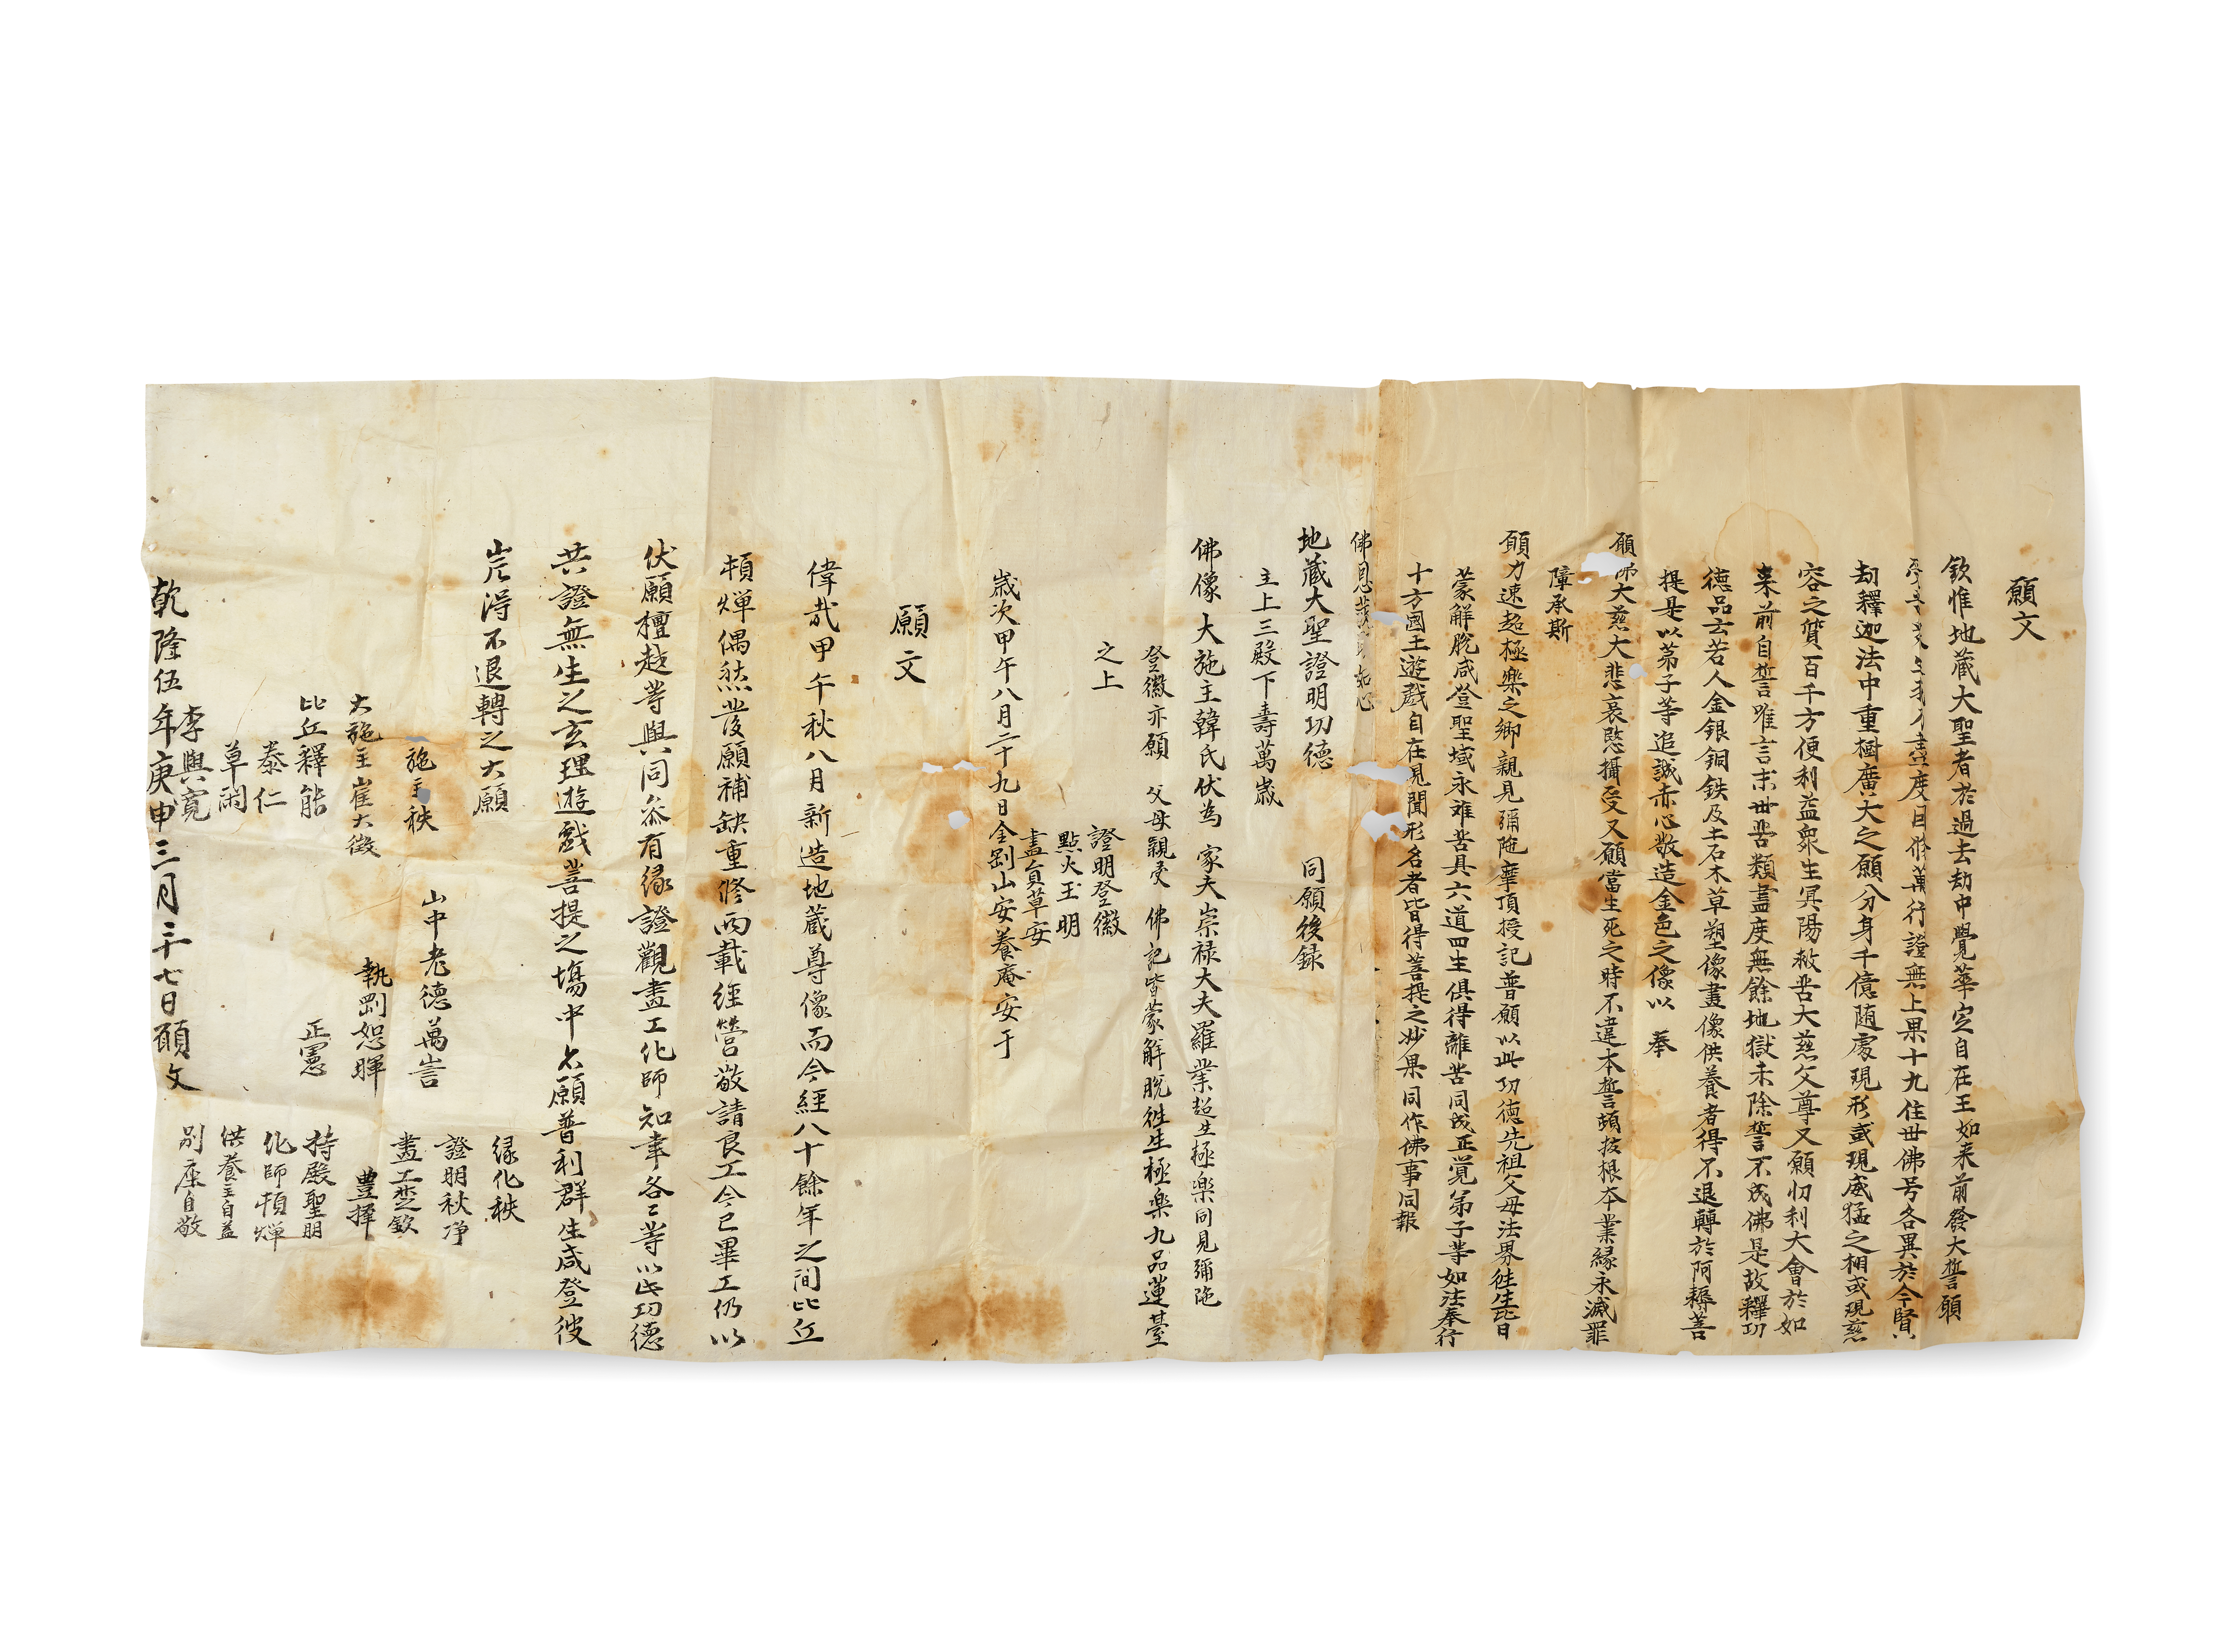 願文
欽惟地蔵大聖者於過去劫中覺華㝎自在王如来前發大誓願
盡度目修萬行證無上果十九住世佛号各異於今賢
劫釋迦法中重樹廣大之願分身千億随處現形或現威猛之相或現慈
容之質百千方便利益衆生冥陽救苦大慈父尊又願忉利大會於如
来前自誓唯言末世苦類盡度無餘地獄未除誓不成佛是故釋功
德品云若人金銀銅鉄及土石木草塑像畫像供養者得不退轉於阿耨菩
提是以苐子等追誠赤心敬造金色之像以 奉
願佛大慈大悲哀愍攝受又願當生死之時不違本誓頓抜根本業縁永滅罪
障承斯
願力速超極樂之鄉親見彌陁摩頂授記普願以此功德先祖父母法界徃生此日
蒙解脫咸登聖域永難苦具六道四生俱得離苦同成正覚弟子等如法奉行
十方國王遊戲自在見聞形名者皆得菩提之妙果同作佛事同報
佛恩
地蔵大聖證明功德 同願後録
主上三殿下壽萬歳
佛像大施主韓氏伏為 家夫崇禄大夫羅業超生極楽同見彌陁
登徽亦願 父母親受 佛記皆蒙解脫徃生極楽九品蓮䑓
之上
證明登徽
點火玉明
畵員草安
歳次甲午八月二十九日金剛山安養庵安于
願文
偉㦲甲午秋八月新造地蔵尊像而今經八十餘年之間比丘
頓燀偶然發願補缺重修兩載經營敬請良工今已畢工仍以
伏願檀越䓁與同叅有縁證觀畵工化師知事各〻等以此功德
共證無生之玄理遊戲菩提之塲中亦願普利群生咸登彼
岸得不退轉之大願
縁化秩
證明秋净
畵工楚欽
豊擇
持殿聖明
化師頓燀
供養主自益
別座自敬
山中老德萬訔
執剛恕暉
正憲
施主秩
大施主崔大徴
比丘釋能
泰仁
草閑
李興寛
乾隆伍年庚申三月二十七日願文